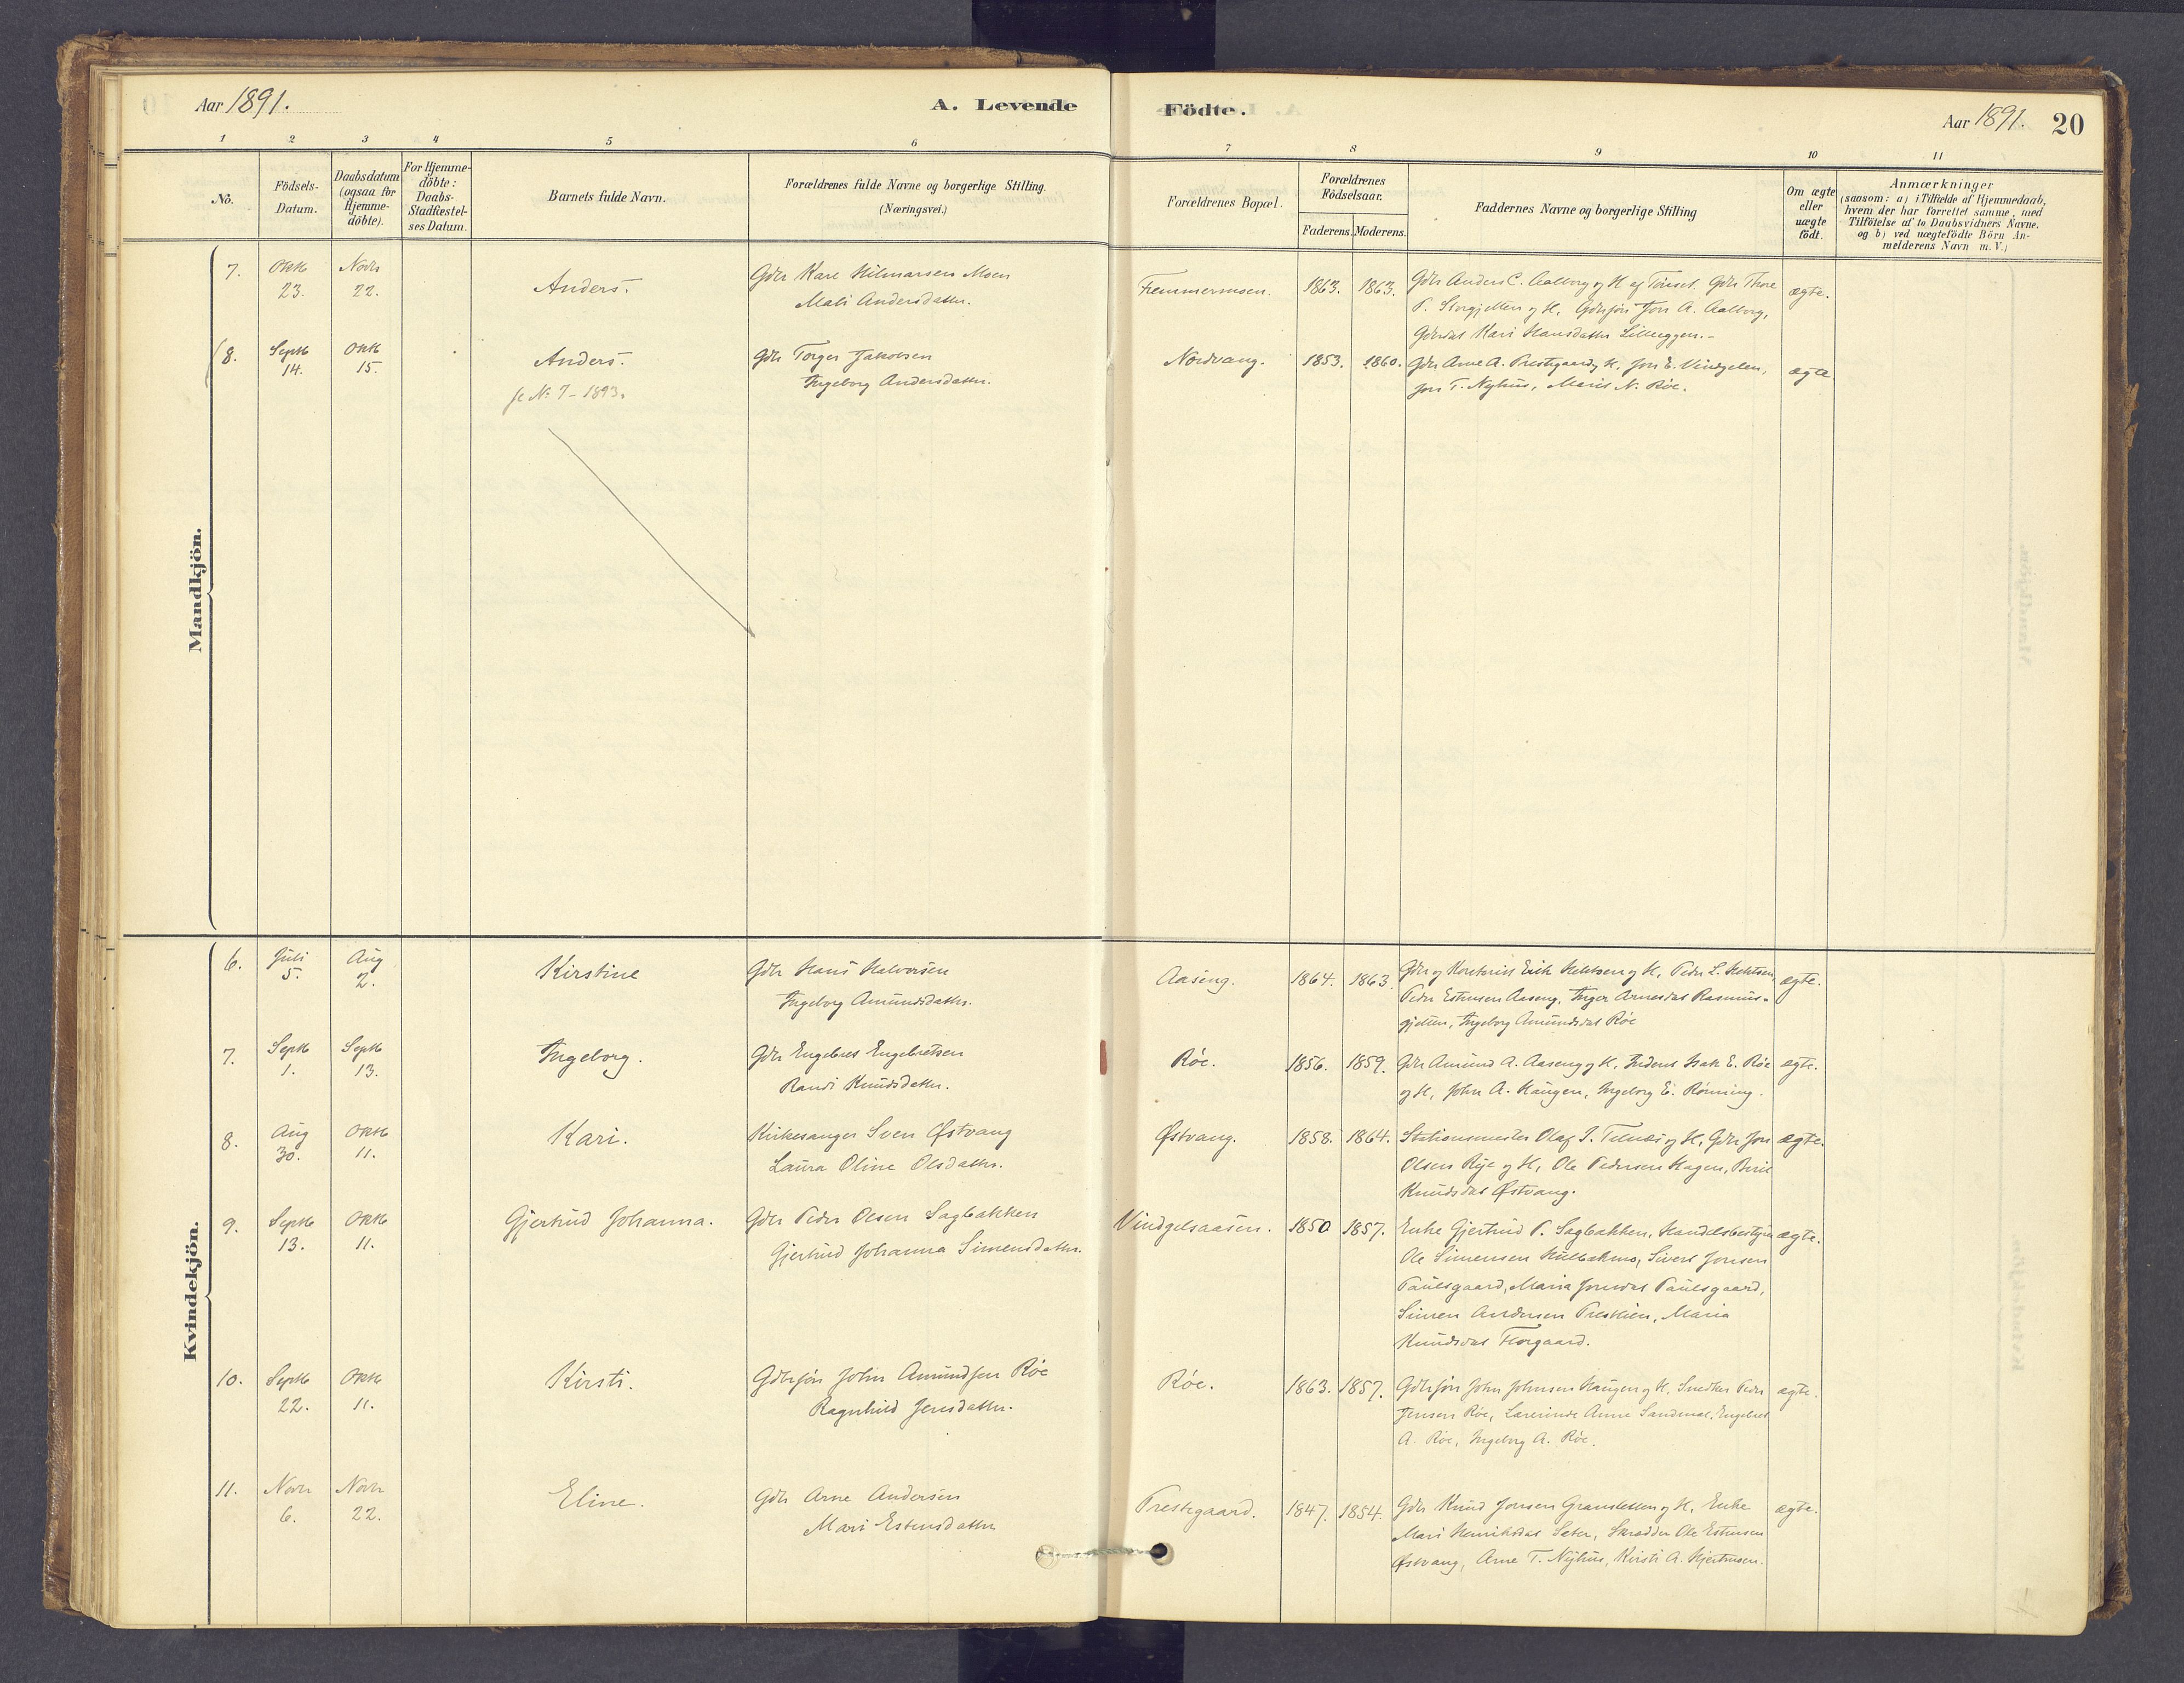 Aar 1891.
A. Levende Födte.
Aar 1891. 20
1 2 3 4 5 6 7 8 9 10 11
No.
Födsels-
Datum.
Daabsdatum
(ogsaa for
Hjemme-
döbte).
For Hjemme-
döbte:
Daabs-
Stadfæstel-
ses Datum.
Barnets fulde Navn.
Forældrenes fulde Navne og borgerlige Stilling.
(Næringsvei.)
Forældrenes Bopæl.
Forældrenes
Födselsaar.
Faderens. Moderens.
Faddernes Navne og borgerlige Stilling
Om ægte
eller
uægte
födt.
Anmærkninger
(saasom: a) i Tilfælde af Hjemmedaab,
hvem der har forrettet samme, med
Tilföielse af to Daabsvidners Navne.
og b) ved uægtefödte Börn An-
melderens Navn m. V.)
Mandkjön.
7. Oktb 23. Novbr 22. Anders. Gdbr Kare Hilmarsen Moen
Mali Andersdatter.
1863. 1863. Gdbr Anders C. Aalborg og H af Tönset. Gdbr Thore
P. Storgjelten og H, Gdbrsön Jon A. Aalborg,
Gdbrdat Kari Hansdatter Lilleeggen.-
ægte.
8. Septb 14. Oktb 15. Anders. Gdbr Torger Jakobsen
Ingeborg Andersdatter.
se No 7 - 1893.
Nordvang. 1853. 1860. Gdbr Arne A. Prestgaard og H, Jon E. Vingelen,
Jon T. Nyhus, Marit N. Röe.
ægte
Kvindekjön.
6. Juli 5. Aug 2. Kirstine Gdbr Hans Halvorsen
Ingeborg Amundsdatter.
Aaseng. 1864. 1863. Gdbr og Erik og H, Peder L.
Peder Estensen Aaseng, Inger Arnesdat Rasmus-
gjelten, Ingeborg Amundsdat Röe
ægte.
7. Septb 1. Septb 13. Ingeborg. Gdbr Engebret Engebretsen
Randi Knudsdatter.
Röe. 1856. 1859. Gdbr Amund A. Aaseng og H, Isak E. Röe
og H, John A. Haugen, Ingeborg E. Rönning.
ægte.
8. Aug 30. Oktb 11. Kari. Kirkesanger Sven Østvang
Laura Oline Olsdatter.
Østvang. 1858. 1864. Stationsmester Olaf J. og H, Gdbr Jon
Olsen Rye og H, Ole Pedersen Hagen, Berit
Knudsdat Østvang.
ægte.
9. Septb 13. Oktb 11. Gjertrud Johanna. Gdbr Peder Olsen Sagbakken
Gjertrud Johanna Simensdatter.
Vindgelsaasen. 1850 1857. Enke Gjertrud P. Sagbakken, Handelsbestyrer
Ole Simensen Sivert Jonsen
Paulsgaard, Maria Jonsdat Paulsgaard,
Simen Andersen Maria
Knudsdat
ægte.
10. Septb 22. Oktb 11. Kirsti. Gdbrsön John Amundsen Röe
Ragnhild Jensdatter.
Röe. 1863. 1857. Gdbrsön John Johnsen Haugen og H, Snedker Peder
Jensen Röe, Lærerinde Anne Engebret
A. Röe, Ingeborg A. Röe.
ægte.
11. Novbr 6. Novbr 22. Eline. Gdbr Arne Andersen
Mari Estensdatter
Prestegaard. 1847. 1854. Gdbr Knud Jonsen og H, Enke
Mari Henriksdat Seter, Skrædder Ole Estensen
Østvang, Arne T. Nyhus, Kirsti A.
ægte.